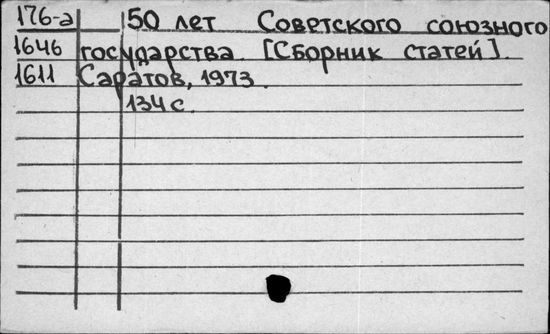 176-а 50 лет Советского союзного
1646 государства. [Сборник статей].
1611 Саратов, 1973.
134 с.